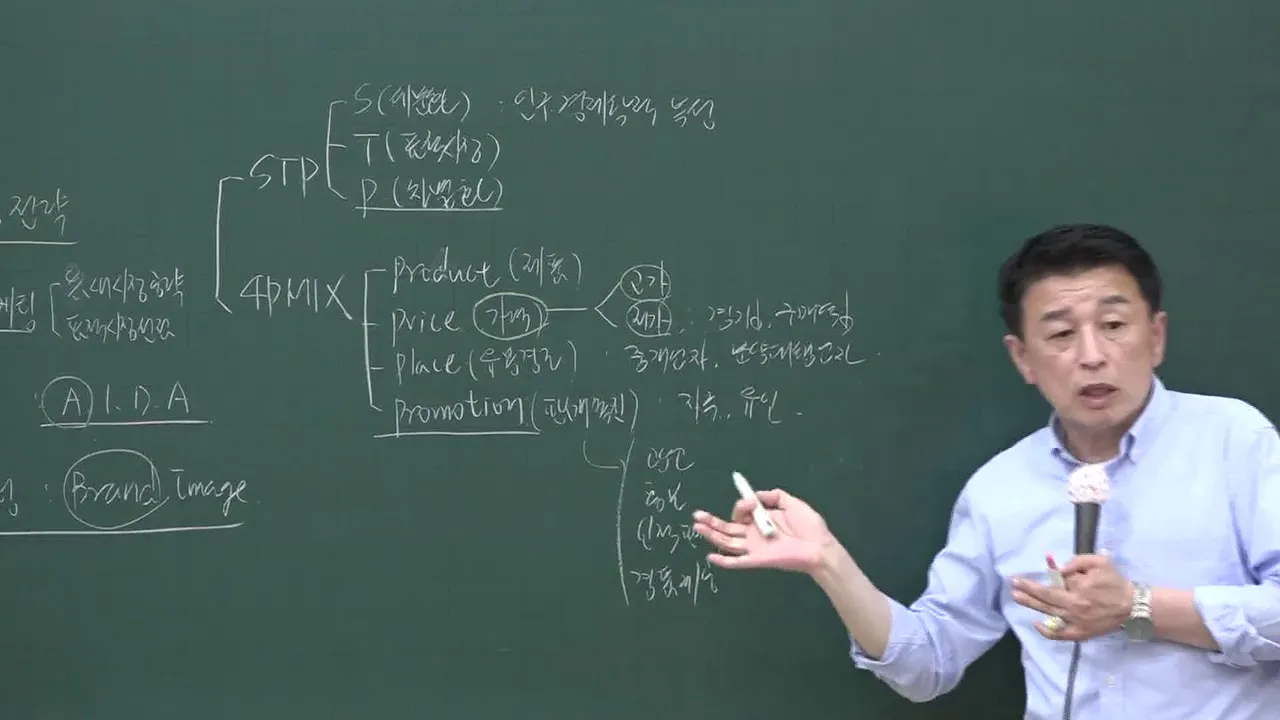 전략
틈새시장공략
표적시장선점
A I.D.A
Brand Image
STP
S (세분화) : 인구 경제학적 특성
T (표적시장)
P (차별화)
4P MIX
product (제품)
price (가격)
고가
저가
place (유통경로) : 중개업자, 분양대행업자
promotion (판매촉진) : 지속, 유인
광고
홍보
인적판매
경품제공